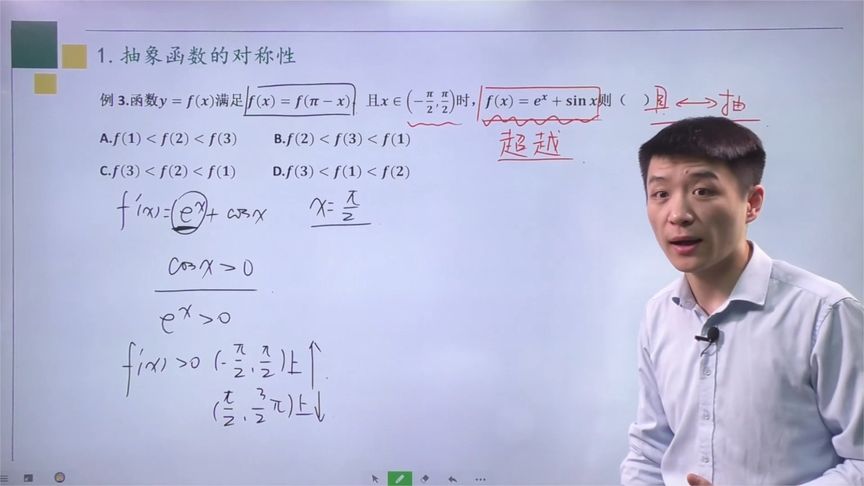 1. 抽象函数的对称性
例 3.函数y = f(x)满足f(x) = f(π − x),且x ∈ (−π/2, π/2)时, f(x) = eˣ + sin x则（ ） 具 ⟷ 抽
超越
A.f(1) < f(2) < f(3) B.f(2) < f(3) < f(1)
C.f(3) < f(2) < f(1) D.f(3) < f(1) < f(2)
f'(x) = eˣ + cosx x = π/2
cosx > 0
eˣ > 0
f'(x) > 0 (-π/2, π/2)上↑
(π/2, 3/2π)上↓